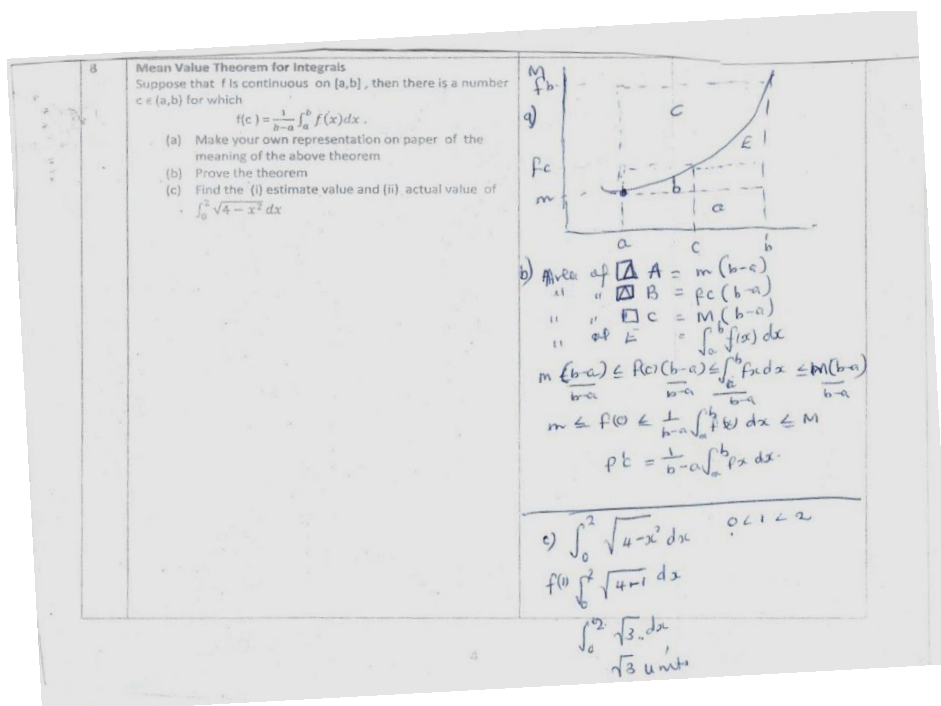 8
Mean Value Theorem for Integrals
Suppose that f is continuous on [a,b], then there is a number
c ∈ (a,b) for which
f(c) = 1/(b−a) ∫_a^b f(x)dx .
(a) Make your own representation on paper of the
meaning of the above theorem
(b) Prove the theorem
(c) Find the (i) estimate value and (ii) actual value of
∫_0^2 √(4 − x²) dx
M
fb
a)
C
E
fc
b
m
a
a c b
b) Area of □ A = m (b-a)
" " □ B = fc (b-a)
" " □ C = M (b-a)
" of E = ∫_a^b f(x) dx
m (b-a)/(b-a) ≤ f(c) (b-a)/(b-a) ≤ ∫_a^b fx dx/(b-a) ≤ M(b-a)/(b-a)
m ≤ f(c) ≤ 1/(b-a) ∫_a^b f(x) dx ≤ M
f'c = 1/(b-a) ∫_a^b fx dx.
c) ∫_0^2 √(4-x²) dx 0 < 1 < 2
f(1) ∫_0^2 √(4-1) dx
∫_0^2 √3 dx
√3 units
4